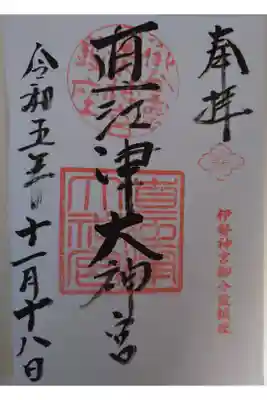 奉拝
伊勢神宮御分霊鎮座
直江津大神宮
令和五年十一月十八日